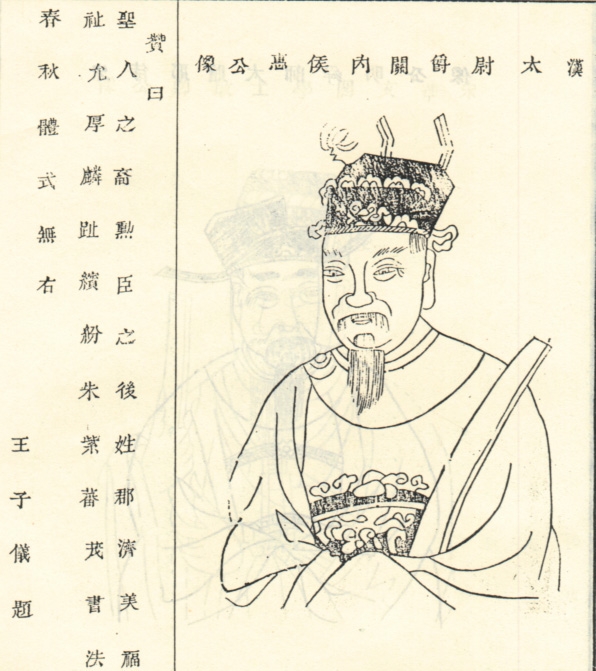 漢太尉爵關內侯公像
贊曰
聖人之裔勲臣之後姓郡濟美福
祉允厚麟趾繽紛朱紫蕃茂書法
春秋體式無右
王子儀題